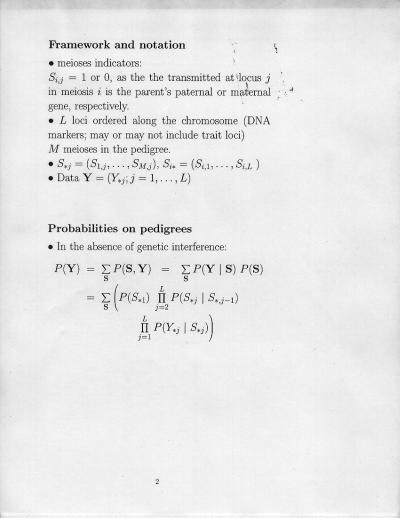 Framework and notation
• meioses indicators:
S_{i,j} = 1 or 0, as the the transmitted at locus j
in meiosis i is the parent's paternal or maternal
gene, respectively.
• L loci ordered along the chromosome (DNA
markers; may or may not include trait loci)
M meioses in the pedigree.
• S_{*j} = (S_{1,j}, . . . , S_{M,j}), S_{i*} = (S_{i,1}, . . . , S_{i,L} )
• Data Y = (Y_{*j}; j = 1, . . . , L)
Probabilities on pedigrees
• In the absence of genetic interference:
P(Y) = ∑_S P(S, Y) = ∑_S P(Y | S) P(S)
= ∑_S ( P(S_{*1}) ∏_{j=2}^{L} P(S_{*j} | S_{*,j−1})
∏_{j=1}^{L} P(Y_{*j} | S_{*j}) )
2